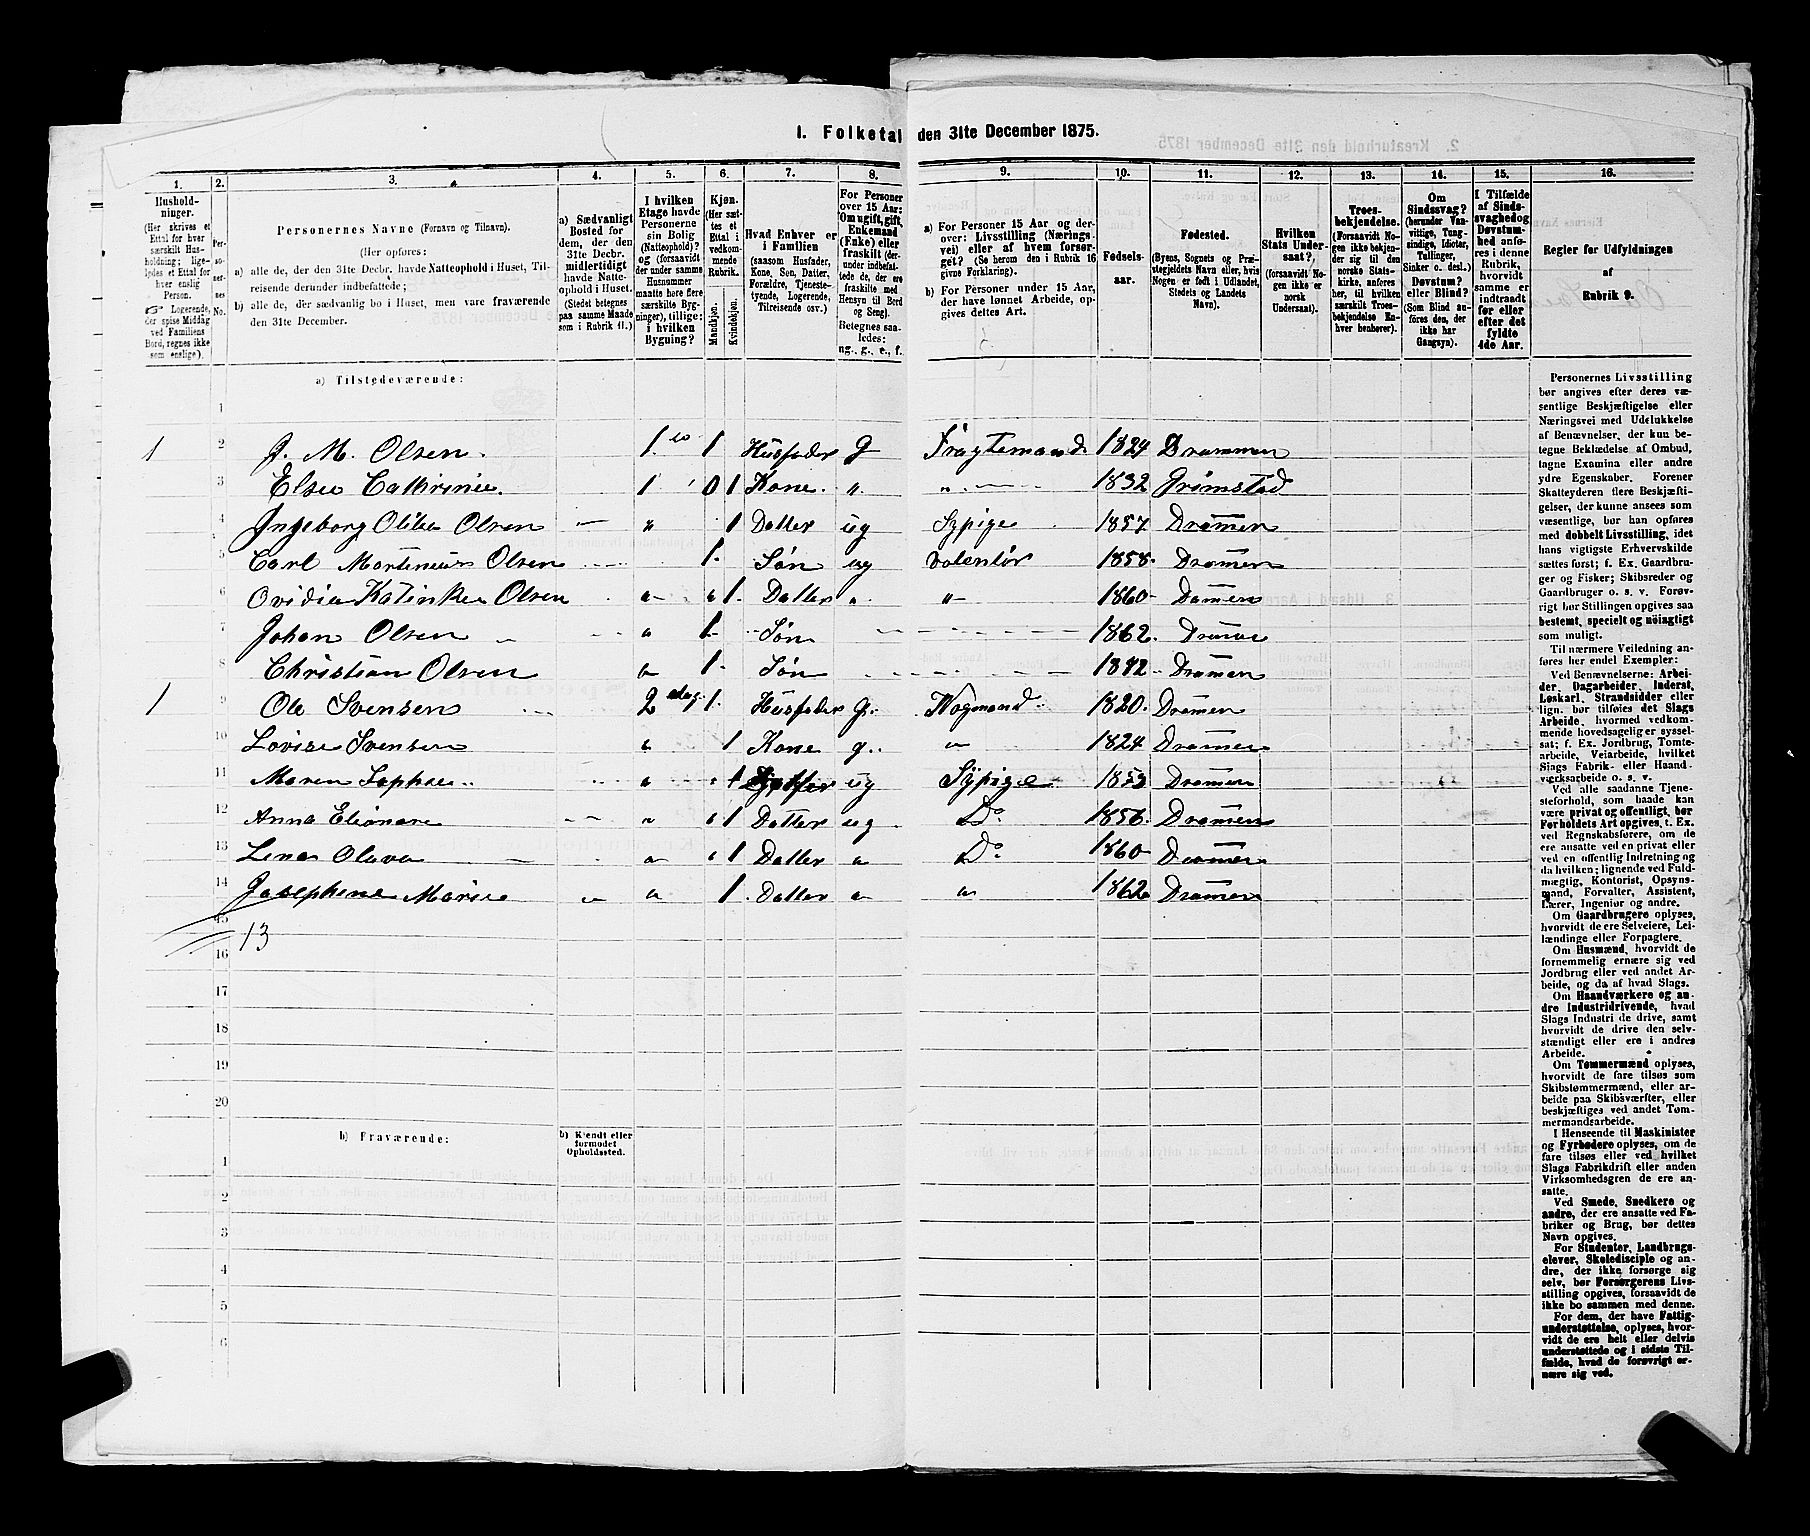 1. Folketal den 31te December 1875.
1.
2.
3.
4.
5.
6.
7.
8.
9.
10.
11.
12.
13.
14.
15.
16.
Hushold-
ninger.
(Her skrives et
Ettal for hver
særskilt Hus-
holdning; lige-
ledes et Ettal for
hver enslig
Person.
Logerende,
der spise Middag
ved Familiens
Bord, regnes ikke
som enslige).
Per-
so-
ner-
nes
No.
Personernes Navne (Fornavn og Tilnavn).
(Her opføres:
a) alle de, der den 31te Decbr. havde Natteophold i Huset, Til-
reisende derunder indbefattede;
b) alle de, der sædvanlig bo i Huset, men vare fraværende
den 31te December.
a) Sædvanligt
Bosted for
dem, der den
31te Decbr.
midlertidigt
havde Natte-
ophold i Huset.
(Stedet betegnes
paa samme Maade
som i Rubrik 11.)
I hvilken
Etage havde
Personerne
sin Bolig
(Natteophold)?
og (forsaavidt
der under samme
Husnummer
maatte høre flere
særskilte Byg-
ninger), tillige:
i hvilken
Bygning?
Kjøn.
(Her sæt-
tes et
Ettal i
vedkom-
mende
Rubrik.
Mandkjøn.
Kvindekjøn.
Hvad Enhver er
i Familien
(saasom Husfader,
Kone, Søn, Datter,
Forældre, Tjeneste-
tyende, Logerende,
Tilreisende osv.)
For Personer
over 15 Aar:
Om ugift, gift,
Enkemand
(Enke) eller
fraskilt (der-
under indbefat-
tede de, der ere
fraskilte med
Hensyn til Bord
og Seng).
Betegnes saa-
ledes:
ug., g., e., f.
a) For Personer 15 Aar og der-
over: Livsstilling (Nærings-
vei) eller af hvem forsør-
get? (Se herom den i Rubrik 16
givne Forklaring).
b) For Personer under 15 Aar,
der have lønnet Arbeide, op-
gives dettes Art.
Fødsels-
aar.
Fødested.
(Byens, Sognets og Præ-
stegjeldets Navn eller, hvis
Nogen er født i Udlandet,
Stedets og Landets
Navn).
Hvilken
Stats Under-
saat?
(forsaavidt No-
gen ikke er
norsk
Undersaat).
Troes-
bekjendelse.
(Forsaavidt No-
gen ikke bekjen-
der sig til den
norske Stats-
kirke, anføres
her, til hvilken
særskilt Troes-
bekjendelse En-
hver henhører).
Om
Sindssvag?
(herunder Van-
vittige, Tung-
sindige, Idioter,
Tullinger,
Sinker o. desl.)
Døvstum?
eller Blind?
(Som Blind an-
føres den, der
ikke har
Gangsyn).
I Tilfælde
af Sinds-
svaghed og
Døvstum-
hed anfø-
res i denne
Rubrik,
hvorvidt
samme er
indtraadt
før eller
efter det
fyldte
4de Aar.
Regler for Udfyldningen
af
Rubrik 9.
a) Tilstedeværende:
1
1 2 J. M. Olsen. 1. 1 Husfader g Fragtemand 1824 Drammen
3 Elsee Cathrinie. 1 0 1 Kone. „ „ 1832 Grimstad
4 Ingeborg Olibe Olsen — „ 1 Datter ug Sypige 1857 Dramen
5 Carl Martinius Olsen 1. Søn ug Volentør 1858. Dramen
6 Ovidia Katinka Olsen „ „ 1. Datter „ „ 1860 Damen
7 Johan Olsen „ 1. Søn 1862. Drame
8 Christian Olsen „ 1. Søn 1872. Dramen
1 9 Ole Svensen 2 etag. 1. Husfader g. 1820. Dramen
10 Lovise Svensen „ 1 Kone g. „ 1824 Dramen
11 Maren Sophie „ „ 1 Datter ug Sypige 1853 Dramen
12 Anna Elionare „ „ 1 Datter ug Do 1856. Dramen
13 Lena Olava „ „ 1 Datter „ Do 1860 Dramen
14 Josephene Marie „ „ 1. Datter „ „ 1862 Dramen
15
13
16
17
18
19
20
b) Fraværende:
b) Kjendt eller
formodet
Opholdssted.
1
2
3
4
5
6
Personernes Livsstilling
bør angives efter deres væ-
sentlige Beskjæftigelse eller
Næringsvei med Udelukkelse
af Benævnelser, der kun be-
tegne Beklædelse af Ombud,
tagne Examina eller andre
ydre Egenskaber. Forener
Skatteyderen flere Beskjæfti-
gelser, der kunne ansees som
væsentlige, bør han opføres
med dobbelt Livsstilling, idet
hans vigtigste Erhvervskilde
sættes først; f. Ex. Gaardbru-
ger og Fisker; Skibsreder og
Gaardbruger o. s. v. Forøv-
rigt bør Stillingen opgives saa
bestemt, specielt og nöiagtigt
som muligt.
Til nærmere Veiledning an-
føres her endel Exempler:
Ved Benævnelserne: Arbei-
der, Dagarbeider, Inderst,
Løskarl, Strandsidder eller
lign. bør tilføies det Slags
Arbeide, hvormed vedkom-
mende hovedsagelig er syssel-
sat; f. Ex. Jordbrug, Tomte-
arbeide, Veiarbeide, hvilket
Slags Fabrik- eller Haand-
værksarbeide o. s. v.
Ved alle saadanne Tjene-
steforhold, som baade kan
være privat og offentligt, bør
Forholdets Art opgives, t. Ex.
ved Regnskabsførere, om de
ere ansatte ved en privat eller
ved en offentlig Indretning og
da hvilken; lignende ved Fuld-
mægtig, Kontorist, Opsyns-
mand, Forvalter, Assistent,
Lærer, Ingeniør og andre.
Om Gaardbrugere oplyses,
hvorvidt de ere Selveiere, Lei-
lændinge eller Forpagtere.
Om Husmænd, hvorvidt de
fornemmelig ernære sig ved
Jordbrug eller ved andet Ar-
beide, og da af hvad Slags.
Om Haandværkere og an-
dre Industridrivende, hvad
Slags Industri de drive, samt
hvorvidt de drive den selv-
stændigt eller ere i andres
Arbeide.
Om Tømmermænd oplyses,
hvorvidt de fare tilsøs som
Skibstømmermænd, eller ar-
beide paa Skibsværfter, eller
beskjæftiges ved andet Tøm-
mermandsarbeide.
I Henseende til Maskinister
og Fyrbødere oplyses, om de
fare tilsøs eller ved hvilket
Slags Fabrikdrift eller anden
Virksomhedsgren de ere an-
satte.
Ved Smede, Snedkere og
andre, der ere ansatte ved Fa-
briker og Brug, bør dettes
Navn opgives.
For Studenter, Landbrugs-
elever, Skoledisciple og an-
dre, der ikke forsørge sig
selv, bør Forsørgerens Livs-
stilling opgives, forsaavidt de
ikke bo sammen med denne.
For dem, der have Fattig-
understøttelse, oplyses, hvor-
vidt de ere helt eller delvis
understøttede og i sidste Til-
fælde, hvad de forøvrigt er-
nære sig ved.